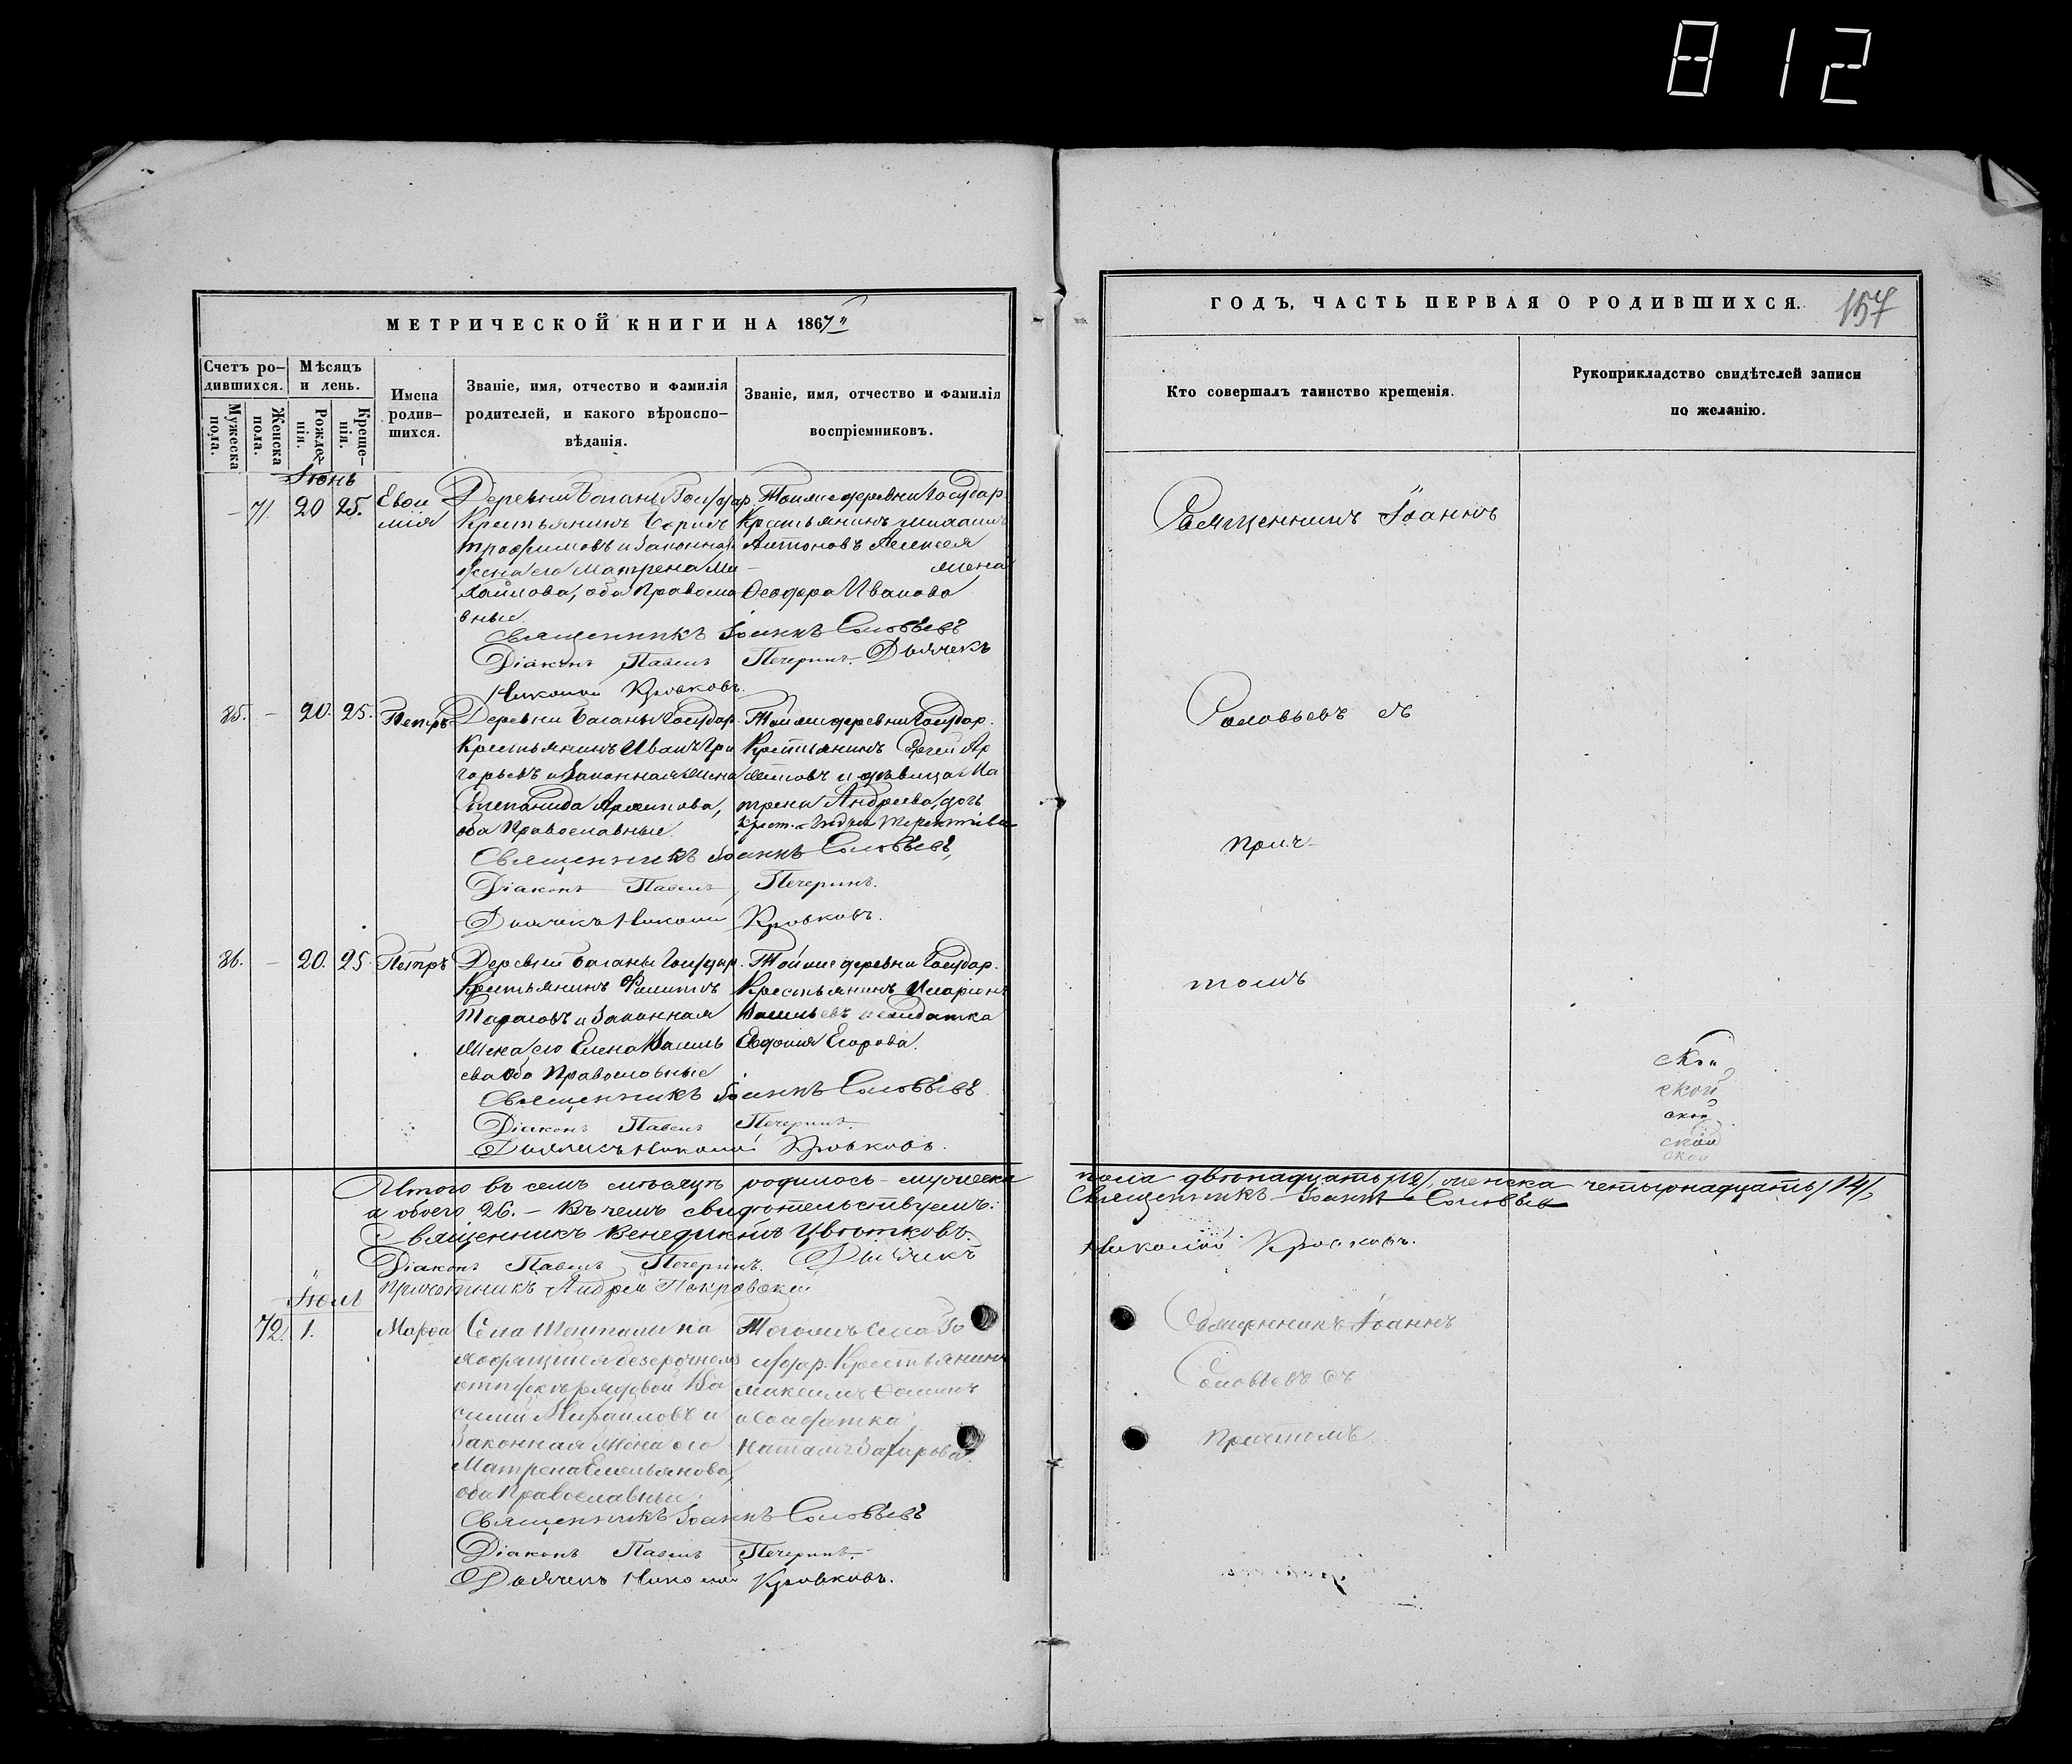 812
МЕТРИЧЕСКОЙ КНИГИ НА 1867
Счетъ ро-
дившихся.
Мужеска
пола.
Женска
пола.
Мѣсяцъ
и день.
Рожде-
нія.
Креще-
нія.
Имена
родив-
шихся.
Званіе, имя, отчество и фамилія
родителей, и какого вѣроиспо-
вѣданія.
Званіе, имя, отчество и фамилія
воспріемниковъ.
Іюнь
– 71. 20 25.
Деревни Баганы Государ.
Крестьянинъ Борисъ
Трофимовъ и Законная
жена его Матрена Ми
хайлова, оба Правосла
вные
Тойже деревни Государ.
Крестьянинъ
Антоновъ
жена
Ѳеодора Иванова
Священникъ Іоаннъ Соловьевъ
Діаконъ Павелъ Печеринъ. Дьячекъ
Николай Кровковъ.
85. – 20. 25. Петръ
Деревни Баганы Государ.
Крестьянинъ Иванъ Гри
горьевъ и Законная жена
Степанида Архипова,
оба Православные.
Тойже деревни Государ.
Крестьянинъ Сергей
и девица Ма
трена Андреева, дочь
Священникъ Іоаннъ Соловьевъ,
Діаконъ Павелъ Печеринъ.
Дьячекъ Николай Кровковъ.
86. – 20. 25 Петръ
Деревни Баганы Государ.
Крестьянинъ Филиппъ
Тарасовъ и Законная
жена его Елена Василь
ева Оба Православные
Тойже деревни Государ.
Крестьянинъ Иларіонъ
Васильевъ и солдатка
Евдокия Егорова.
Священникъ Іоаннъ Соловьевъ
Діаконъ Павелъ Печеринъ.
Дьячекъ Николай Кровковъ.
Итого въ семъ мѣсяцѣ родилось – мужеска
а обоего 26. – Въ чемъ свидѣтельствуемъ:
Священникъ Венедиктъ Цвѣтковъ.
Діаконъ Павелъ Печеринъ. Дьячекъ
Причетникъ Андрей Покровскій
Іюль
72. 1. Марѳа
Села
безсрочномъ
отпуску рядовой Ва
силій Михаиловъ и
Законная жена его
Матрена Емельянова,
оба Православные.
Тогожъ села Го
судар. Крестьянинъ
Максимъ Ѳоминъ
и Солдатка
Наталья Захарова.
Священникъ Іоаннъ Соловьевъ
Діаконъ Павелъ Печеринъ.
Дьячекъ Николай Кровковъ.
ГОДЪ, ЧАСТЬ ПЕРВАЯ О РОДИВШИХСЯ.
157
Кто совершалъ таинство крещенія.
Рукоприкладство свидѣтелей записи
по желанію.
Священникъ Іоаннъ
Соловьевъ съ
прич-
томъ
ской
ской
ской
ской
ской
пола двѣнадцать /12/, женска четырнадцать /14/,
Священникъ Іоаннъ Соловьевъ
Николай Кровковъ.
Священникъ Іоаннъ
Соловьевъ съ
Причтомъ.